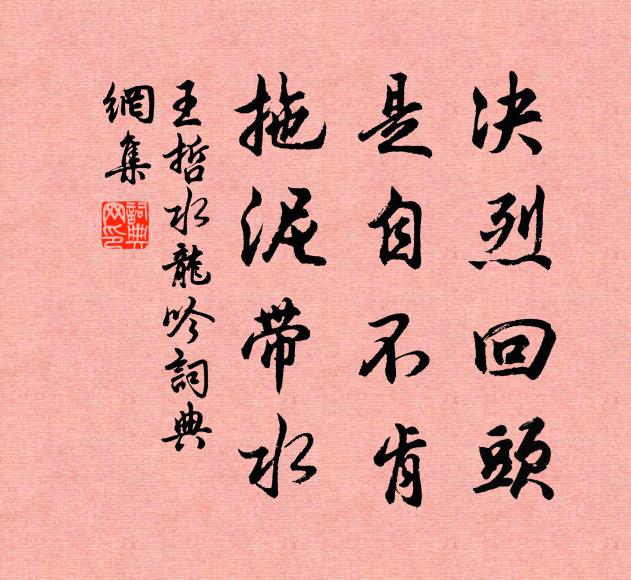 决烈回頭
是自不肯
拖泥带水
王哲水龍吟詞典
網集
詞典網印